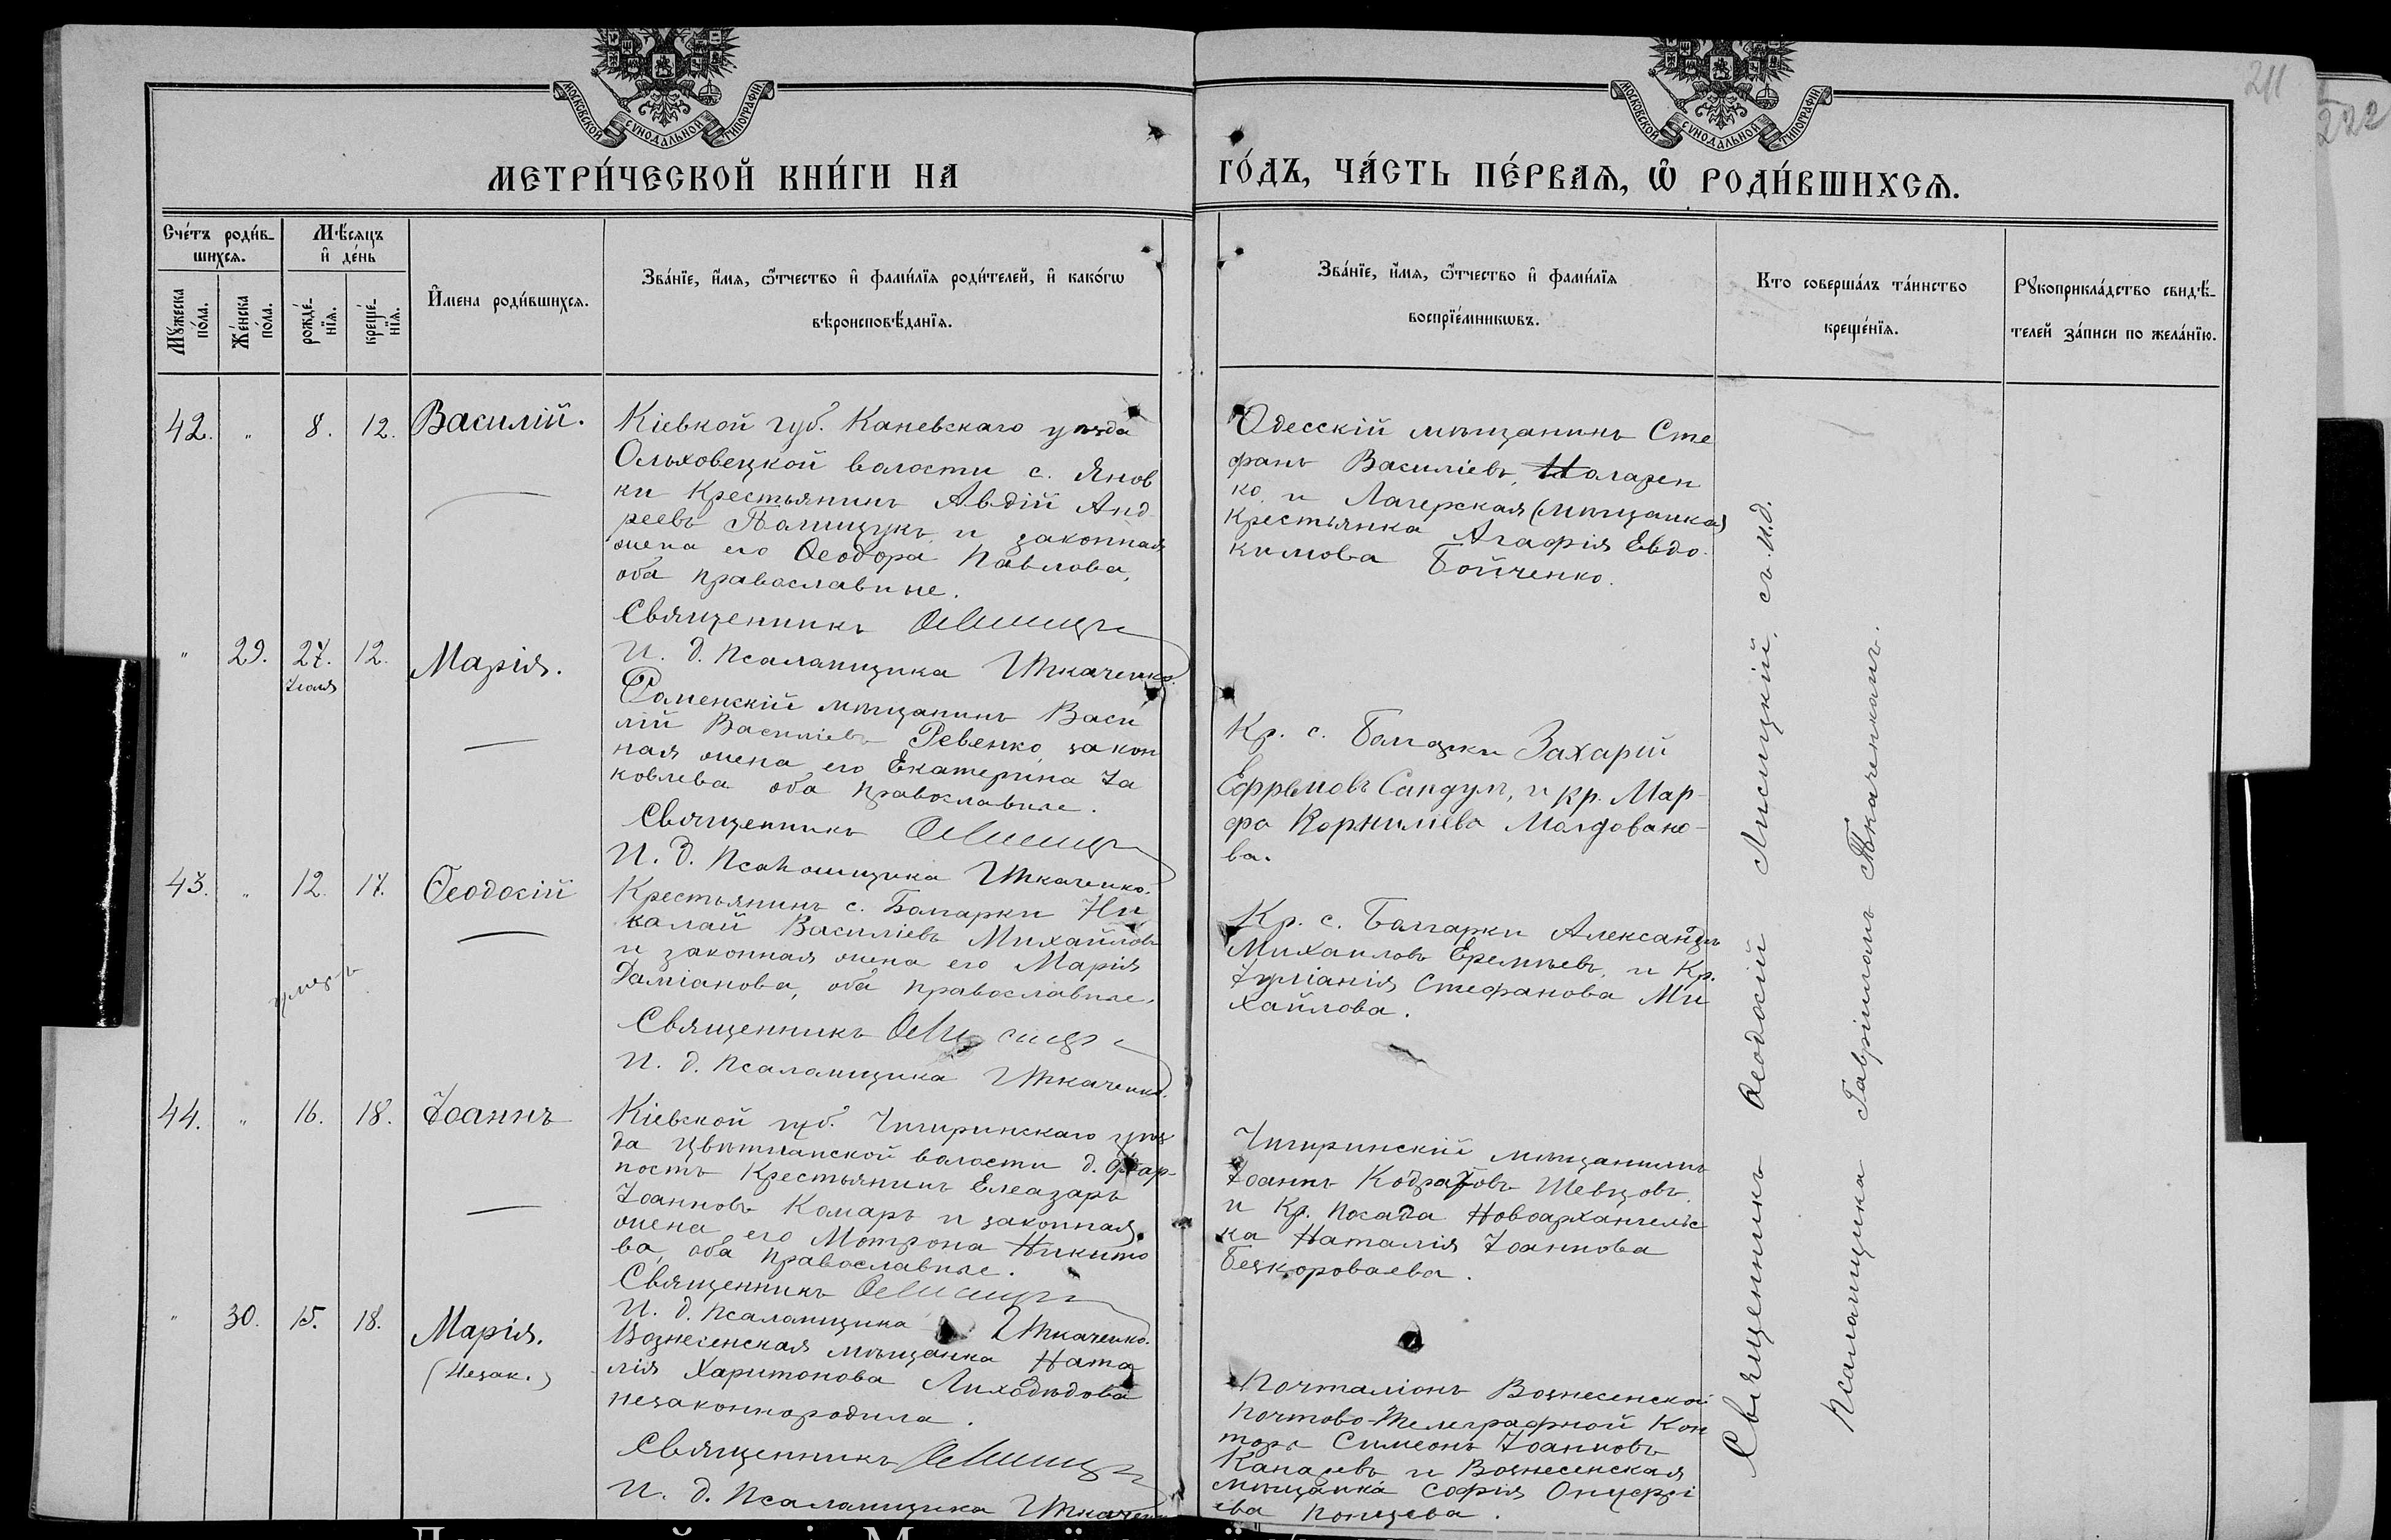 МОСКОВСКОЙ СУНОДАЛЬНОЙ ТИПОГРАФІИ
МОСКОВСКОЙ СУНОДАЛЬНОЙ ТИПОГРАФІИ
211
222
МЕТРИ́ЧЕСКОЙ КНИ́ГИ НА
ГО́ДЪ, ЧА́СТЬ ПЕ́РВАѦ, Ѡ҆ РОДИ́ВШИХСѦ.
Сче́тъ роди́в-
шихсѧ.
Мꙋ́жеска
по́ла.
Же́нска
по́ла.
Мѣ́сѧцъ
и҆ де́нь
рожде́-
нїѧ.
креще́-
нїѧ.
И҆мена роди́вшихсѧ.
Зва́нїе, и҆́мѧ, ѻ҆́тчество и҆ фами́лїѧ роди́телей, и҆ како́гѡ
вѣроисповѣ́данїѧ.
Зва́нїе, и҆́мѧ, ѻ҆́тчество и҆ фами́лїѧ
воспрїе́мникѡвъ.
Кто соверша́лъ та́инство
креще́нїѧ.
Рꙋкоприкла́дство свидѣ́-
телей за́писи по жела́нїю.
42. " 8. 12. Василій.
Кіевкой губ. Каневскаго уѣзда
Ольховецкой волости с. Янов
ки Крестьянинъ Авдій Анд
реевъ Полищукъ и законная
жена его Ѳеодора Павлова,
оба православные.
Священникъ ѲЛисицкі
И. д. Псаломщика ГТкаченко.
Одесскій мѣщанинъ Сте
фанъ Василіевъ
ко и Лагерская (мѣщанка)
крестьянка Агафія Евдо
кимова Бойченко.
" 29. 27. 12. Марія.
Іюля
Роменскій мѣщанинъ Васи
лій Василіевъ Ревенко, закон
ная жена его Екатерина Іа
ковлева оба православные.
Священникъ ѲЛисицкі
И. д. Псаломщика ГТкаченко.
Кр. с. Болгарки Захарій
Ефремовъ Сандул, и кр. Мар-
фа Корнилиева Молдовано-
ва.
43. " 12. 17. Ѳеодосій
умеръ
Крестьянинъ с. Болгарки Ни
колай Василіевъ Михайловъ
и законная жена его Марія
Даміанова, оба православные.
Священникъ ѲЛисицкі
И. д. Псаломщика ГТкаченко.
Кр. с. Болгарки Александръ
Михаиловъ Еремѣевъ, и Кр.
Іуліанія Стефанова Ми
хайлова.
44. " 16. 18. Іоаннъ
Кіевской губ. Чигиринскаго уѣз
да Цвѣтнанской волости д. Фар-
постъ Крестьянинъ Елеазаръ
Іоанновъ Комаръ и законная
жена его Мотрона Никито
ва, оба православные.
Священникъ ѲЛисицкі
И. д. Псаломщика ГТкаченко.
Чигиринскій мѣщанинъ
Іоаннъ Кодратовъ Шевцовъ
и Кр. посада Новоархангельс
ка Наталія Іоаннова
Безкороваева.
" 30. 15. 18. Марія.
(Незак.)
Вознесенская мѣщанка Ната
лія Харитонова Лиходѣдова
незаконнородила.
Священникъ ѲЛисицкі
И. д. Псаломщика ГТкаченко
Почталіонъ Вознесенской
Почтово-Телеграфной Кон
торы Симеонъ Іоанновъ
Канаевъ и Вознесенская
мѣщанка Софія Онуфрі
ева
Священникъ Ѳеодосій Лисицкій, съ и.д.
Псаломщика Гавріиломъ Ткаченкомъ.